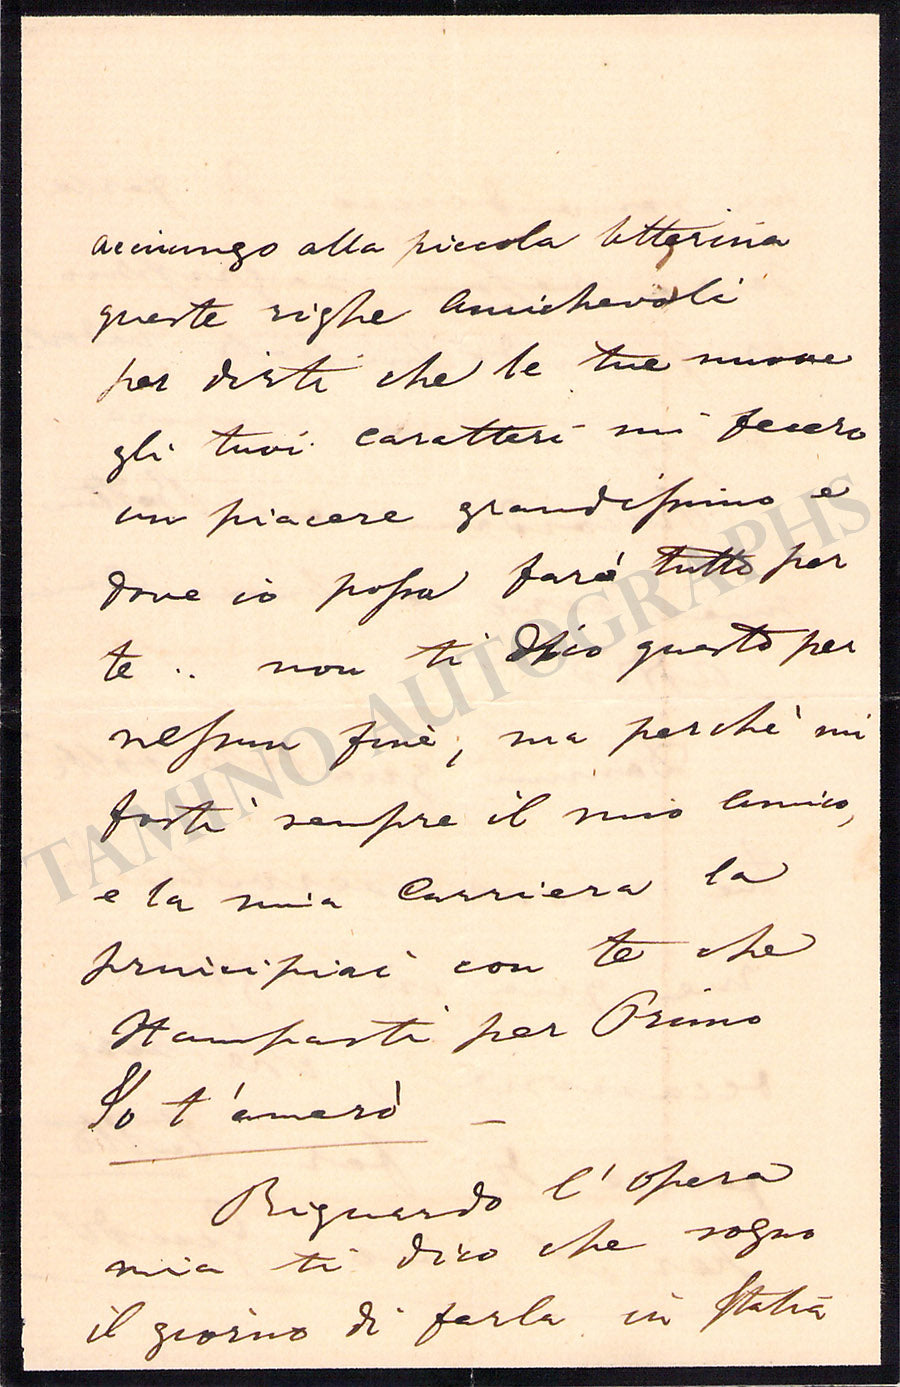 acciungo alla piccola letterina
queste righe amichevoli
per dirti che le tue nuove
gli tuoi caratteri mi fecero
un piacere grandissimo e
dove io possa farò tutto per
te .. non ti dico questo per
nessun fine, ma perchè mi
fosti sempre il mio amico,
e la mia carriera la
principiai con te che
stampasti per Primo
Io t'amerò —
Riguardo l'opera
mia ti dico che sogno
il giorno di farla in Italia
TAMINO AUTOGRAPHS